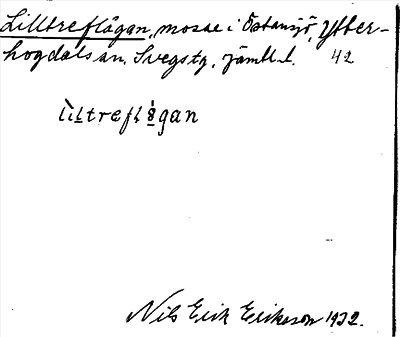 Lilltreflågan, mosse i Östansjö, Ytter-
hogdals sn, Svegs tg, Jämtl. l. 42
lìltreflå̀gan
Nils Erik Eriksson 1932.